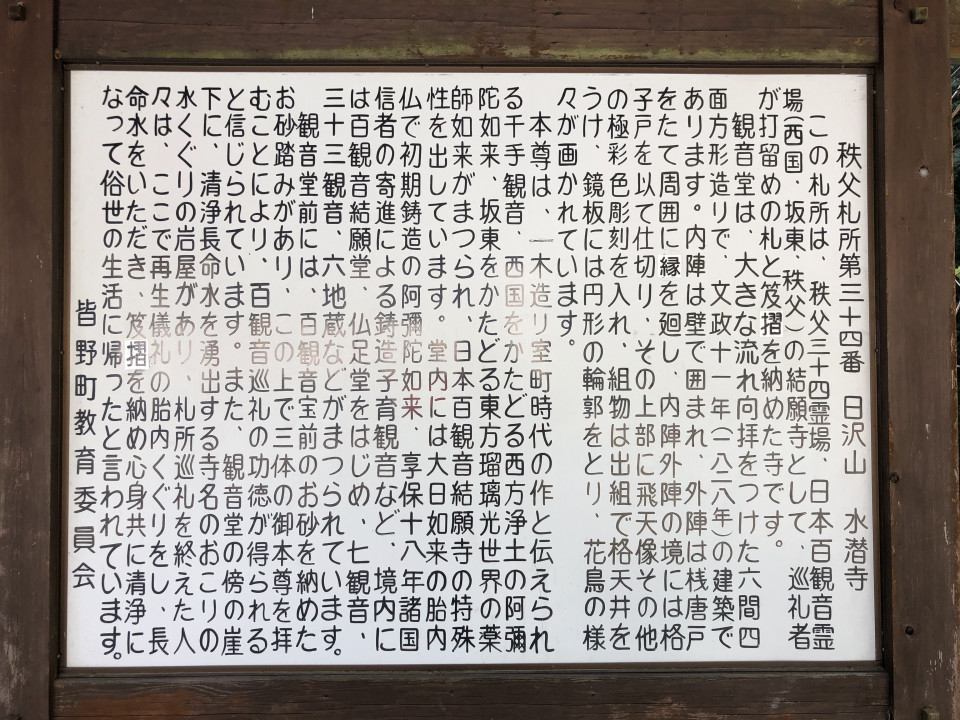 秩父札所第三十四番　日沢山　水潜寺
この札所は、秩父三十四霊場、日本百観音霊
場(西国、坂東、秩父)の結願寺として、巡礼者
が打留めの札と笈摺を納めた寺です。
観音堂は、大きな流れ向拝をつけた六間四
面方形造りで、文政十一年(一八二八年)の建築で
あります。内陣は壁で囲まれ、外陣は桟唐戸
をたて周囲に縁を廻し、内陣外陣の境には格
子戸を以て仕切り、その上部に飛天像その他
の極彩色彫刻を入れ、組物は出組で格天井を
うけ、鏡板には円形の輪郭をとり、花鳥の様
々が画かれています。
本尊は、一木造り室町時代の作と伝えられ
る千手観音、西国をかたどる西方浄土の阿彌
陀如来、坂東をかたどる東方瑠璃光世界の薬
師如来がまつられ、日本百観音結願寺の特殊
性を出しています。堂内には大日如来の胎内
仏で初期鋳造の阿彌陀如来、享保十八年諸国
信者の寄進による鋳造子育観音など、境内に
は百観音結願堂、仏足堂をはじめ、七観音、
三十三観音、六地蔵などがまつられています。
観音堂前には、百観音宝前のお砂を納めた
お砂踏みがあり、この上で三体の御本尊を拝
むことにより、百観音巡礼の功徳が得られる
と信じられています。また、観音堂の傍の崖
下に、清浄長命水を湧出する寺名のおこりの
水くぐりの岩屋があり、札所巡礼を終えた人
々は、ここで再生儀礼の胎内くぐりをし、長
命水をいただき、笈摺を納め心身共に清浄に
なって俗世の生活に帰ったと言われています。
皆野町教育委員会